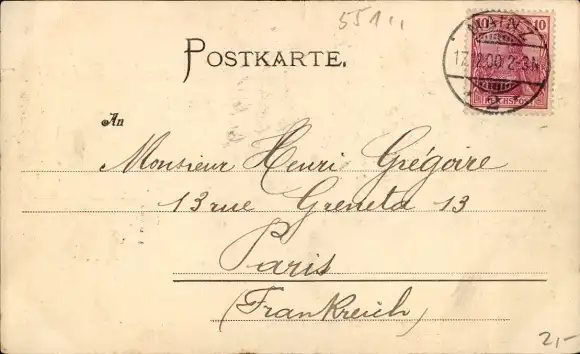 551
POSTKARTE.
10 10
MAINZ
17.12.00.2-3N.
2
REICHSPOST
An
Monsieur Henri Grégoire
13 rue Greneta 13
Paris
(Frankreich)
2,-